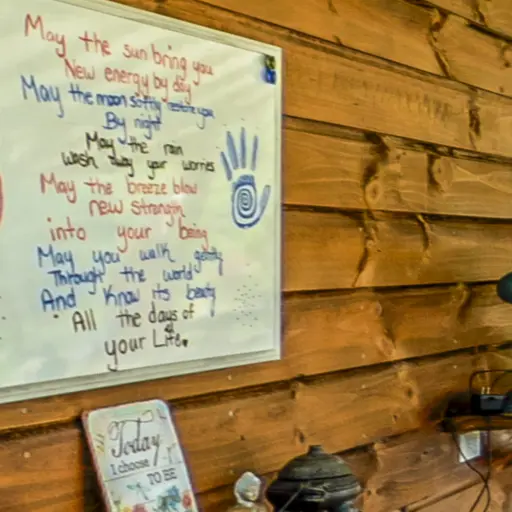 May the sun bring you
New energy by day
May the moon softly restore you
By night
May the rain
wash away your worries
May the breeze blow
new strength
into your being
May you walk gently
Through the world
And Know its beauty
All the days of
your Life.
Today
I choose
TO BE